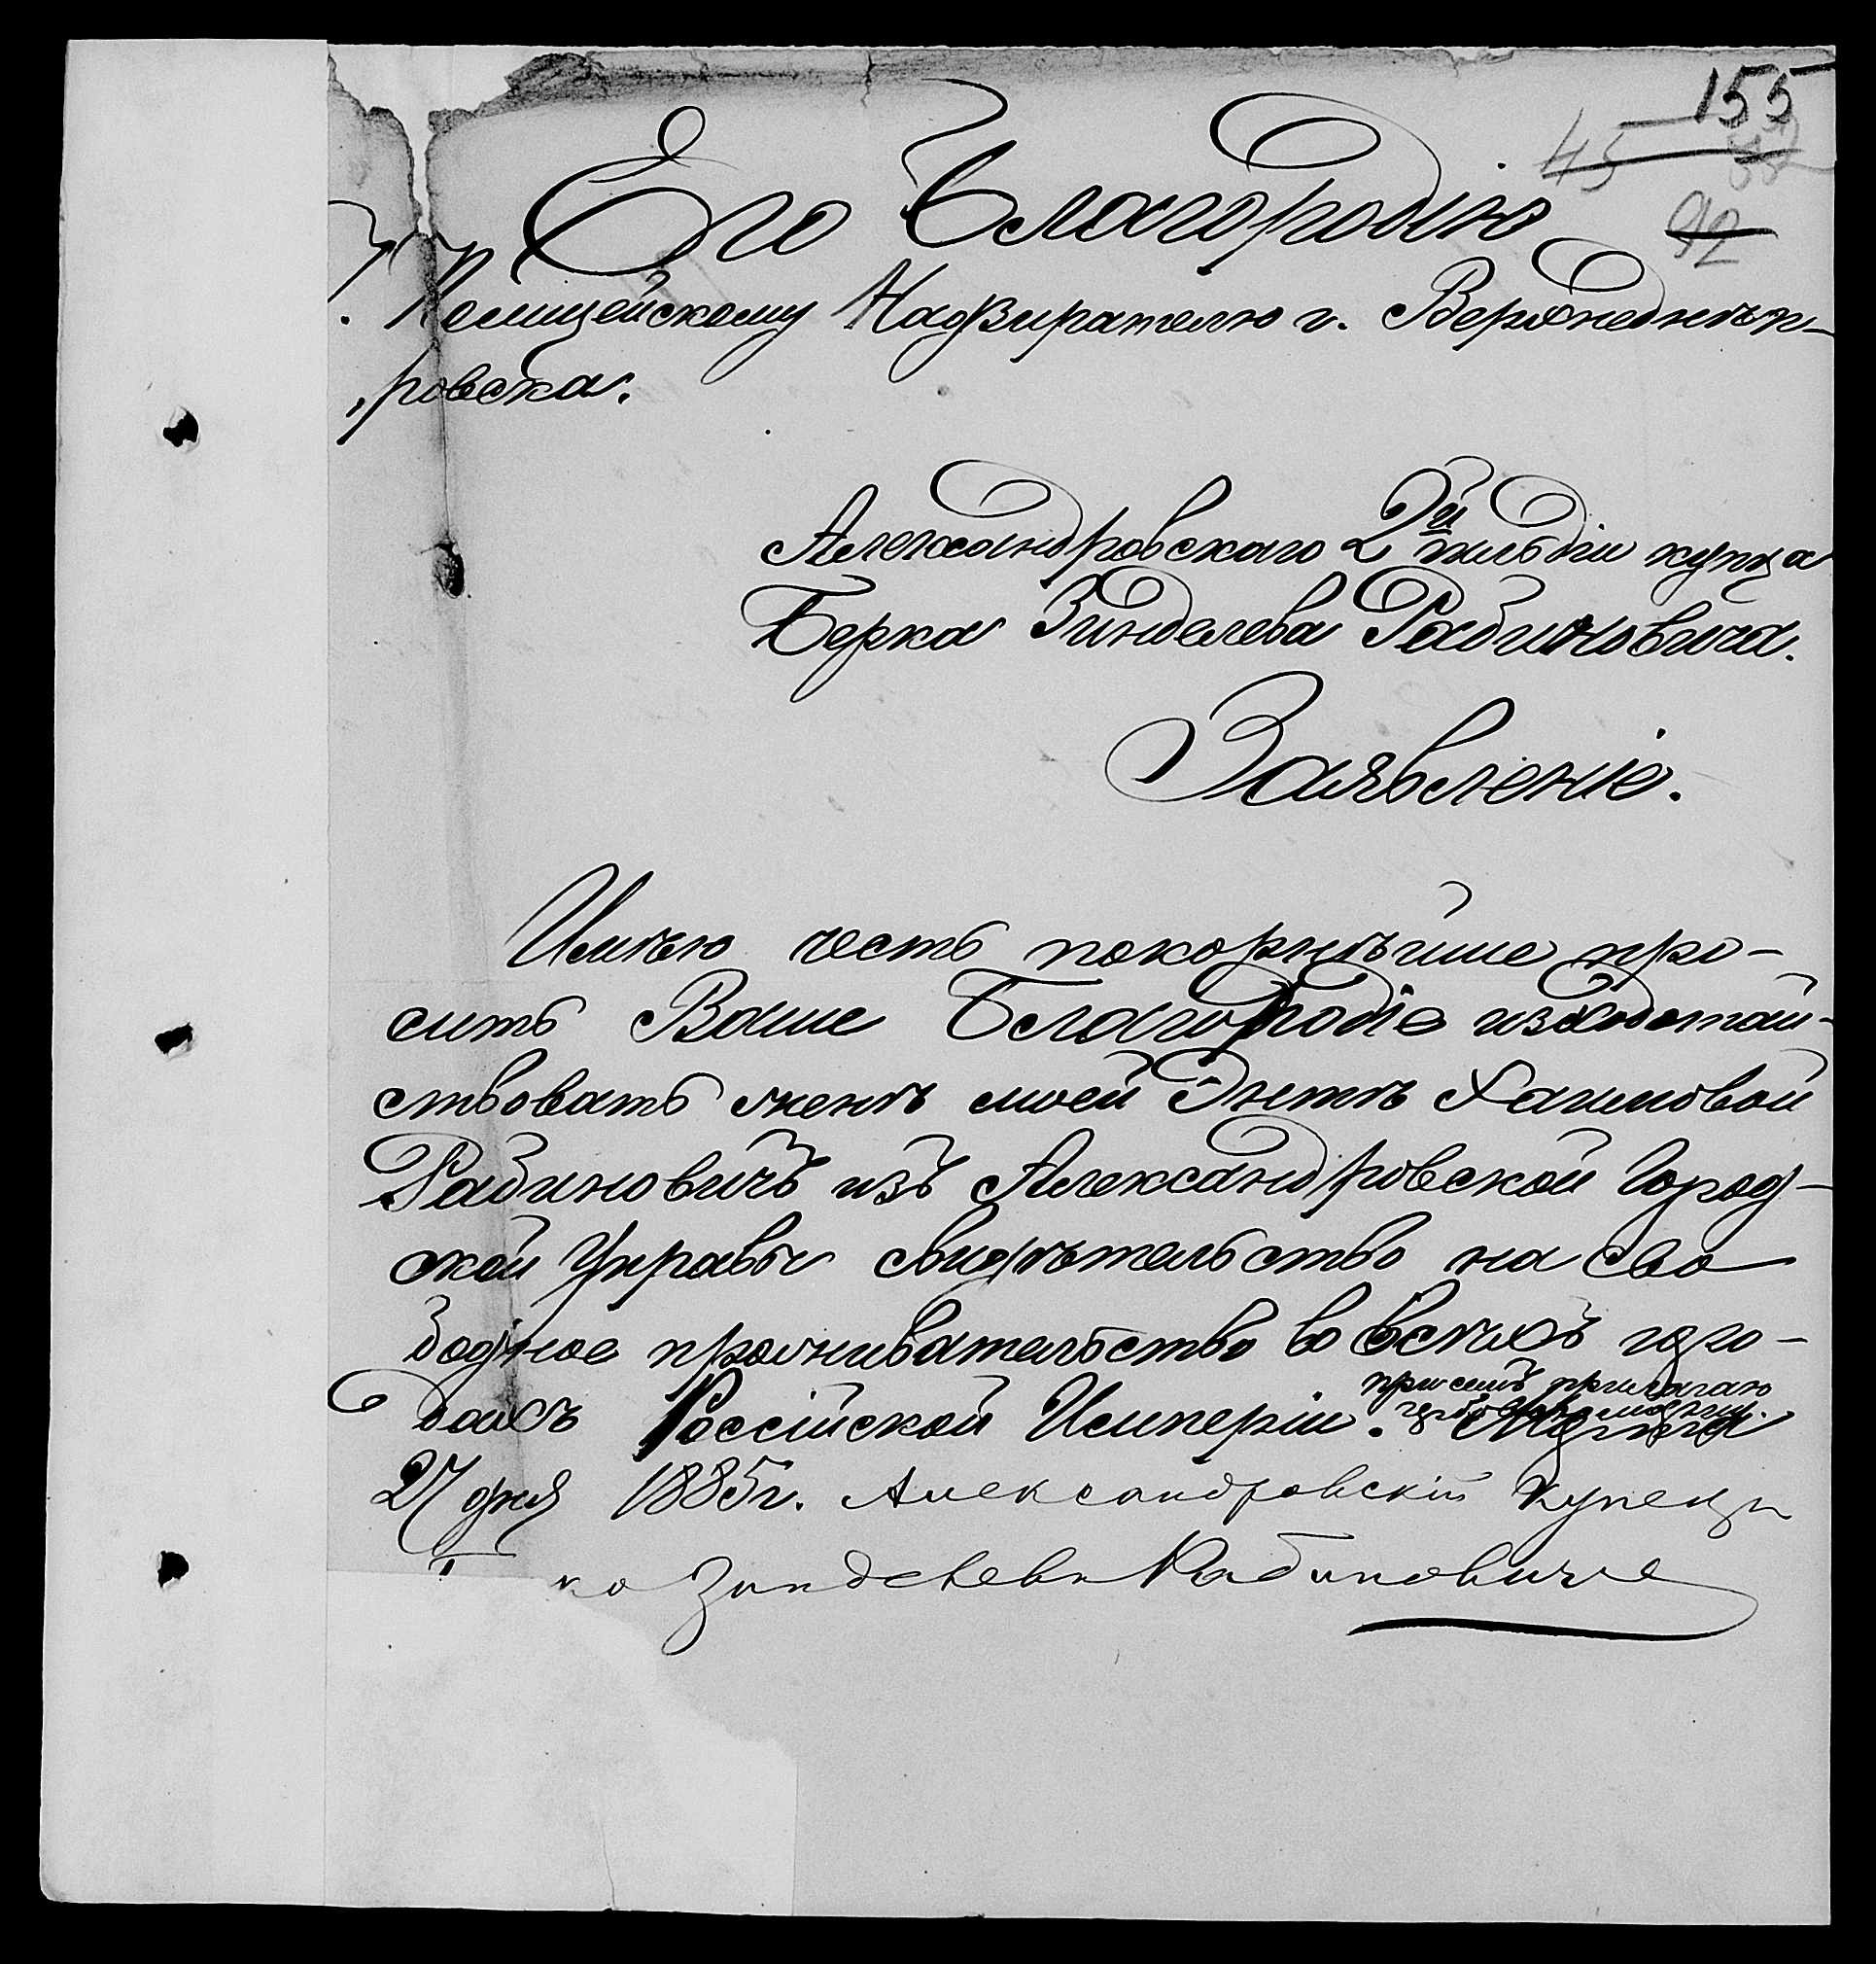 155
45
92
Его Благородію
Г. Полицейскому Надзирателю г. Верхнеднѣп-
ровска.
Александровскаго 2й гильдіи купца
Берка Зинделева Рабиновича.
Заявленіе.
Имѣю честь покорнѣйше про-
сить Ваше Благородіе изходотай-
ствовать женѣ моей Энтѣ Хаимовой
Рабиновичъ изъ Александровской Город-
ской Управы свидѣтельство на сво
бодное проживательство во всѣхъ горо-
при семъ прилагаю
дахъ Россійской Имперіи.
27 дня 1885г. Александровскій купецъ
ко Зинделевъ Рабиновичъ